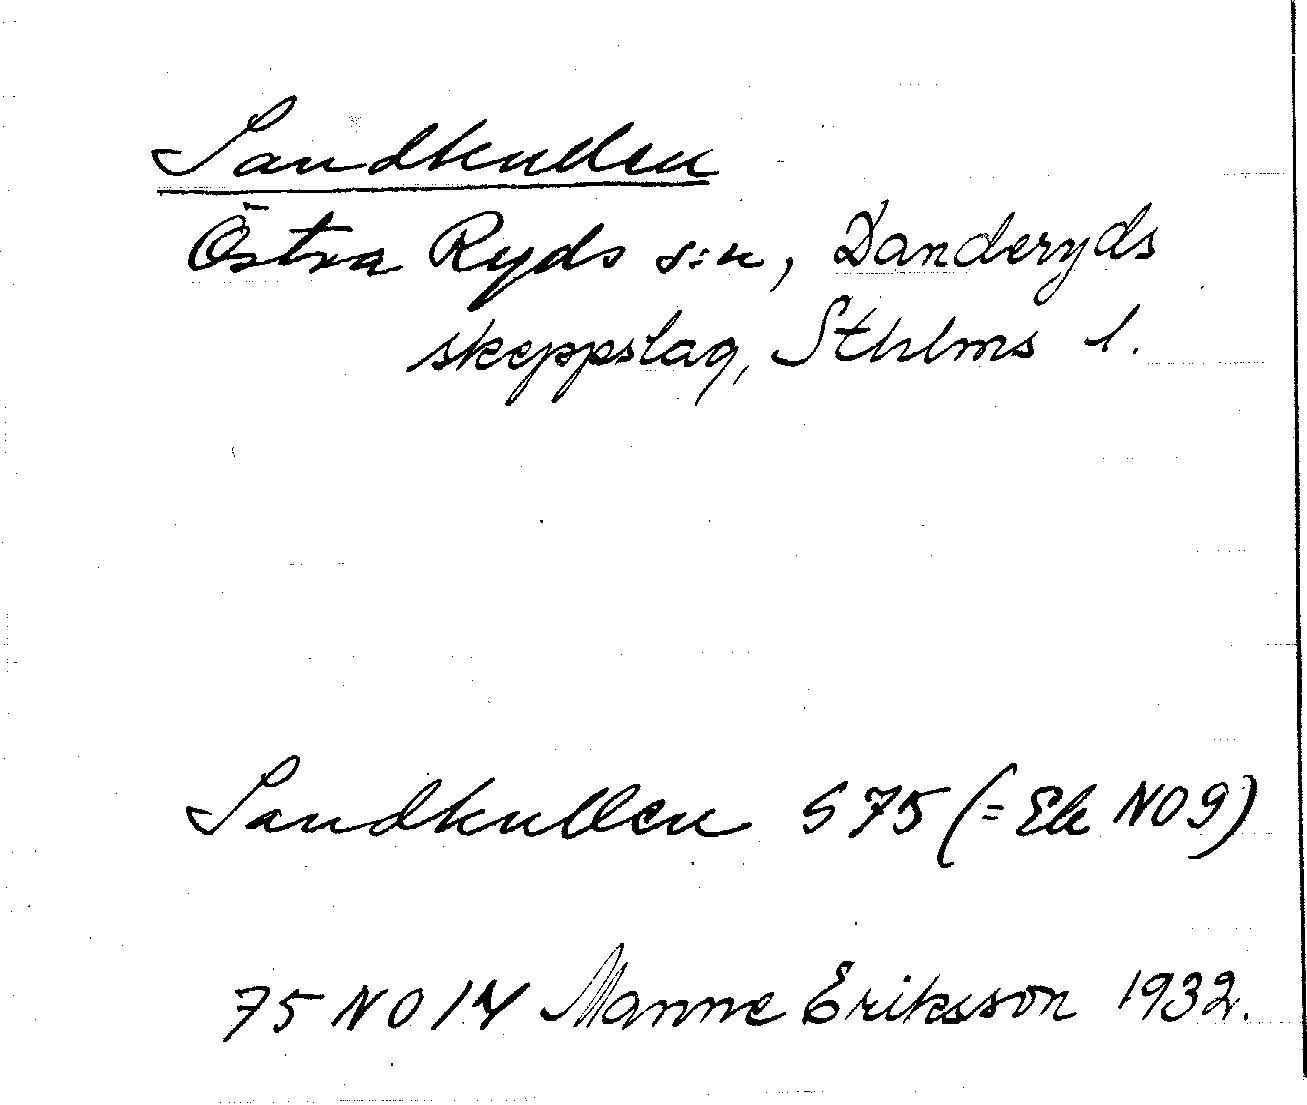 Sandkullen
Östra Ryds s:n, Danderyds
skeppslag, Sthlms l.
Sandkullen S 75 (= Ek NO 9)
75 NO 14 Manne Eriksson 1932.